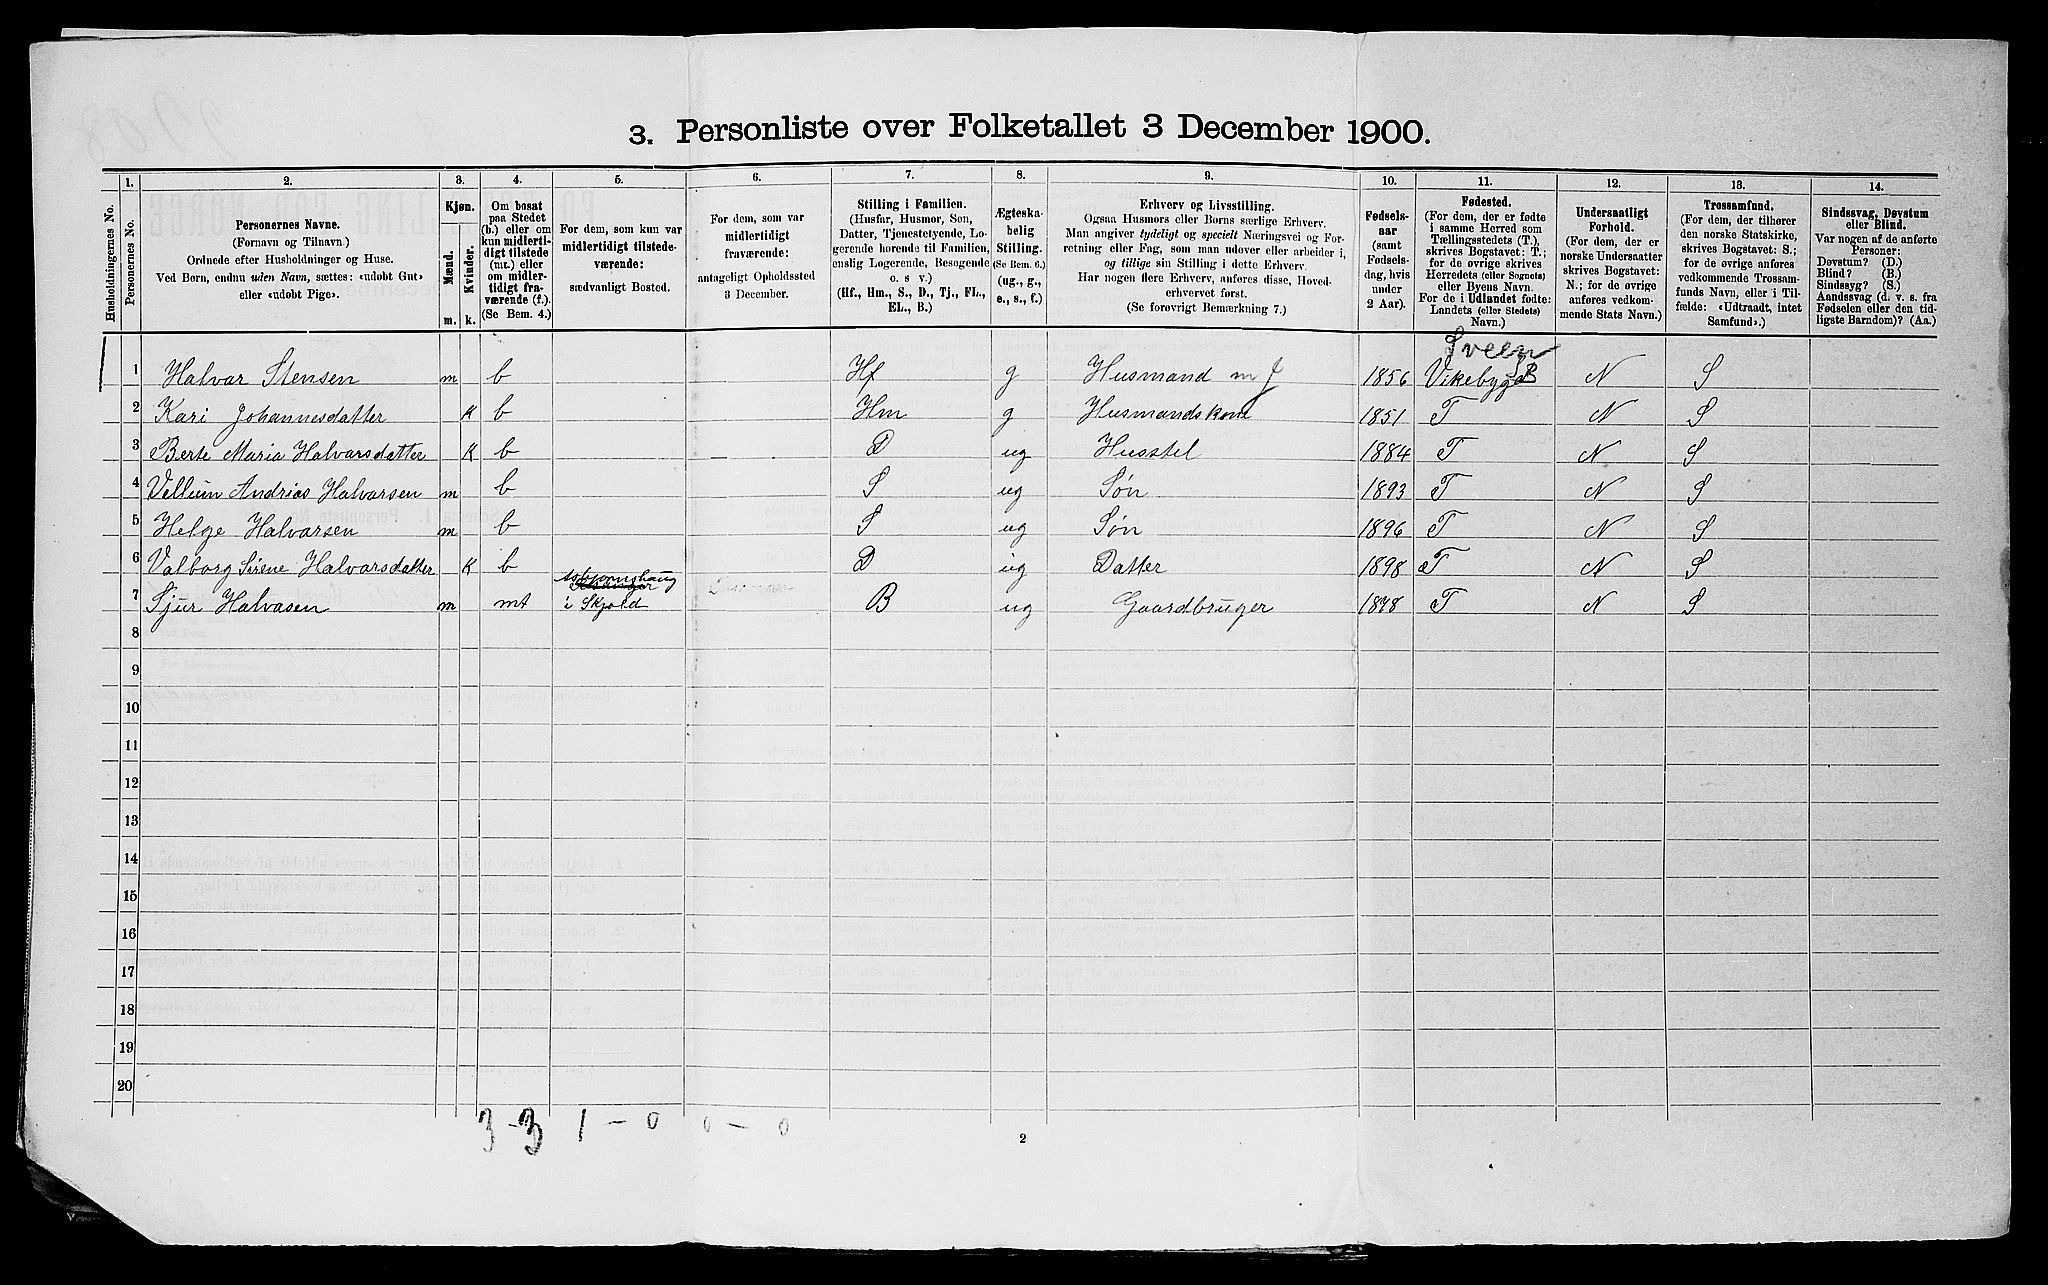 3. Personliste over Folketallet 3 December 1900.
1. 2. 3. 4. 5. 6. 7. 8. 9. 10. 11. 12. 13. 14.
Husholdningernes No.
Personernes No.
Personernes Navne.
(Fornavn og Tilnavn.)
Ordnede efter Husholdninger og Huse.
Ved Børn, endnu uden Navn, sættes: «udøbt Gut»
eller «udøbt Pige».
Kjøn.
Mænd.
Kvinder.
m. k.
Om bosat
paa Stedet
(b.) eller om
kun midlerti-
digt tilstede
(mt.) eller
om midler-
tidigt fra-
værende (f.).
(Se Bem. 4.)
For dem, som kun var
midlertidigt tilstede-
værende:
sædvanligt Bosted.
For dem, som var
midlertidigt
fraværende:
antageligt Opholdssted
3 December.
Stilling i Familien.
(Husfar, Husmor, Søn,
Datter, Tjenestetyende, Lo-
gerende hørende til Familien,
enslig Logerende, Besøgende
o. s v.)
(Hf., Hm., S., D., Tj., FL.,
EL., B.)
Ægteska-
belig
Stilling.
(Se Bem. 6.)
(ug., g.,
e., s., f.)
Erhverv og Livsstilling.
Ogsaa Husmors eller Børns særlige Erhverv.
Man angiver tydeligt og specielt Næringsvei og For-
retning eller Fag, som man udøver eller arbeider i,
og tillige sin Stilling i dette Erhverv.
Har nogen flere Erhverv, anføres disse, Hoved-
erhvervet først.
(Se forøvrigt Bemærkning 7.)
Fødsels-
aar
(samt
Fødsels-
dag, hvis
under
2 Aar).
Fødested.
(For dem, der er fødte
i samme Herred som
Tællingsstedets (T.),
skrives Bogstavet: T.;
for de øvrige skrives
Herredets (eller Sognets)
eller Byens Navn.
For de i Udlandet fødte:
Landets (eller Stedets)
Navn.)
Undersaatligt
Forhold.
(For dem, der er
norske Undersaatter
skrives Bogstavet:
N.; for de øvrige
anføres vedkom-
mende Stats Navn.)
Trossamfund.
(For dem, der tilhører
den norske Statskirke,
skrives Bogstavet: S.;
for de øvrige anføres
vedkommende Trossam-
funds Navn, eller i Til-
fælde: «Udtraadt, intet
Samfund».)
Sindssvag, Døvstum
eller Blind.
Var nogen af de anførte
Personer:
Døvstum? (D.)
Blind? (B.)
Sindssyg? (S.)
Aandssvag (d. v. s. fra
Fødselen eller den tid-
ligste Barndom)? (Aa.)
Sveen
1 Halvar Stensen m b Hf g Husmand m J 1856 Vikebygd N S
2 Kari Johannesdatter k b Hm g Husmandskone 1851 T N S
3 Berte Maria Halvarsdatter K b D ug Husstel 1884 T N S
4 Vellum Andrias Halvarsen m b S ug Søn 1893 T N S
5 Helge Halvarsen m b S ug Søn 1896 T N S
6 Valborg Serene Halvarsdatter K b D ug Datter 1898 T N S
Asbjørnshaug
7 Sjur Halvasen m mt i Skjold B ug Gaardbruger 1848 T N S
8
9
10
11
12
13
14
15
16
17
18
19
20
3 - 3 1 - 0 0 - 0
2